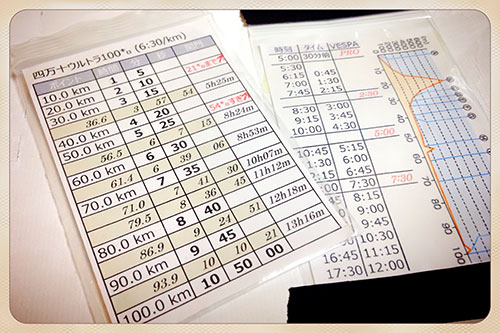 四万十ウルトラ100㌔ (6:30/km)
ポイント 時間 分 秒 関門
10.0 km 1 5
20.0 km 2 10
30.0 km 3 15
36.6 3 57 54 5h25m
40.0 km 4 20
50.0 km 5 25
56.5 6 7 15 8h24m
60.0 km 6 30
61.4 6 39 06 8h53m
70.0 km 7 35
71.0 7 41 30 10h07m
79.5 8 36 45 11h12m
80.0 km 8 40
86.9 9 24 51 12h18m
90.0 km 9 45
93.9 10 10 21 13h16m
100.0 km 10 50 00
時刻 タイム VESPA
5:00 30分前 PRO
5:30
6:15 0:45
7:45 2:15
2:30
3:00
3:45
4:30
5:00
6:45
7:30 7:30
8:15
9:00
9:45
10:30
16:45 11:15
17:30 12:00